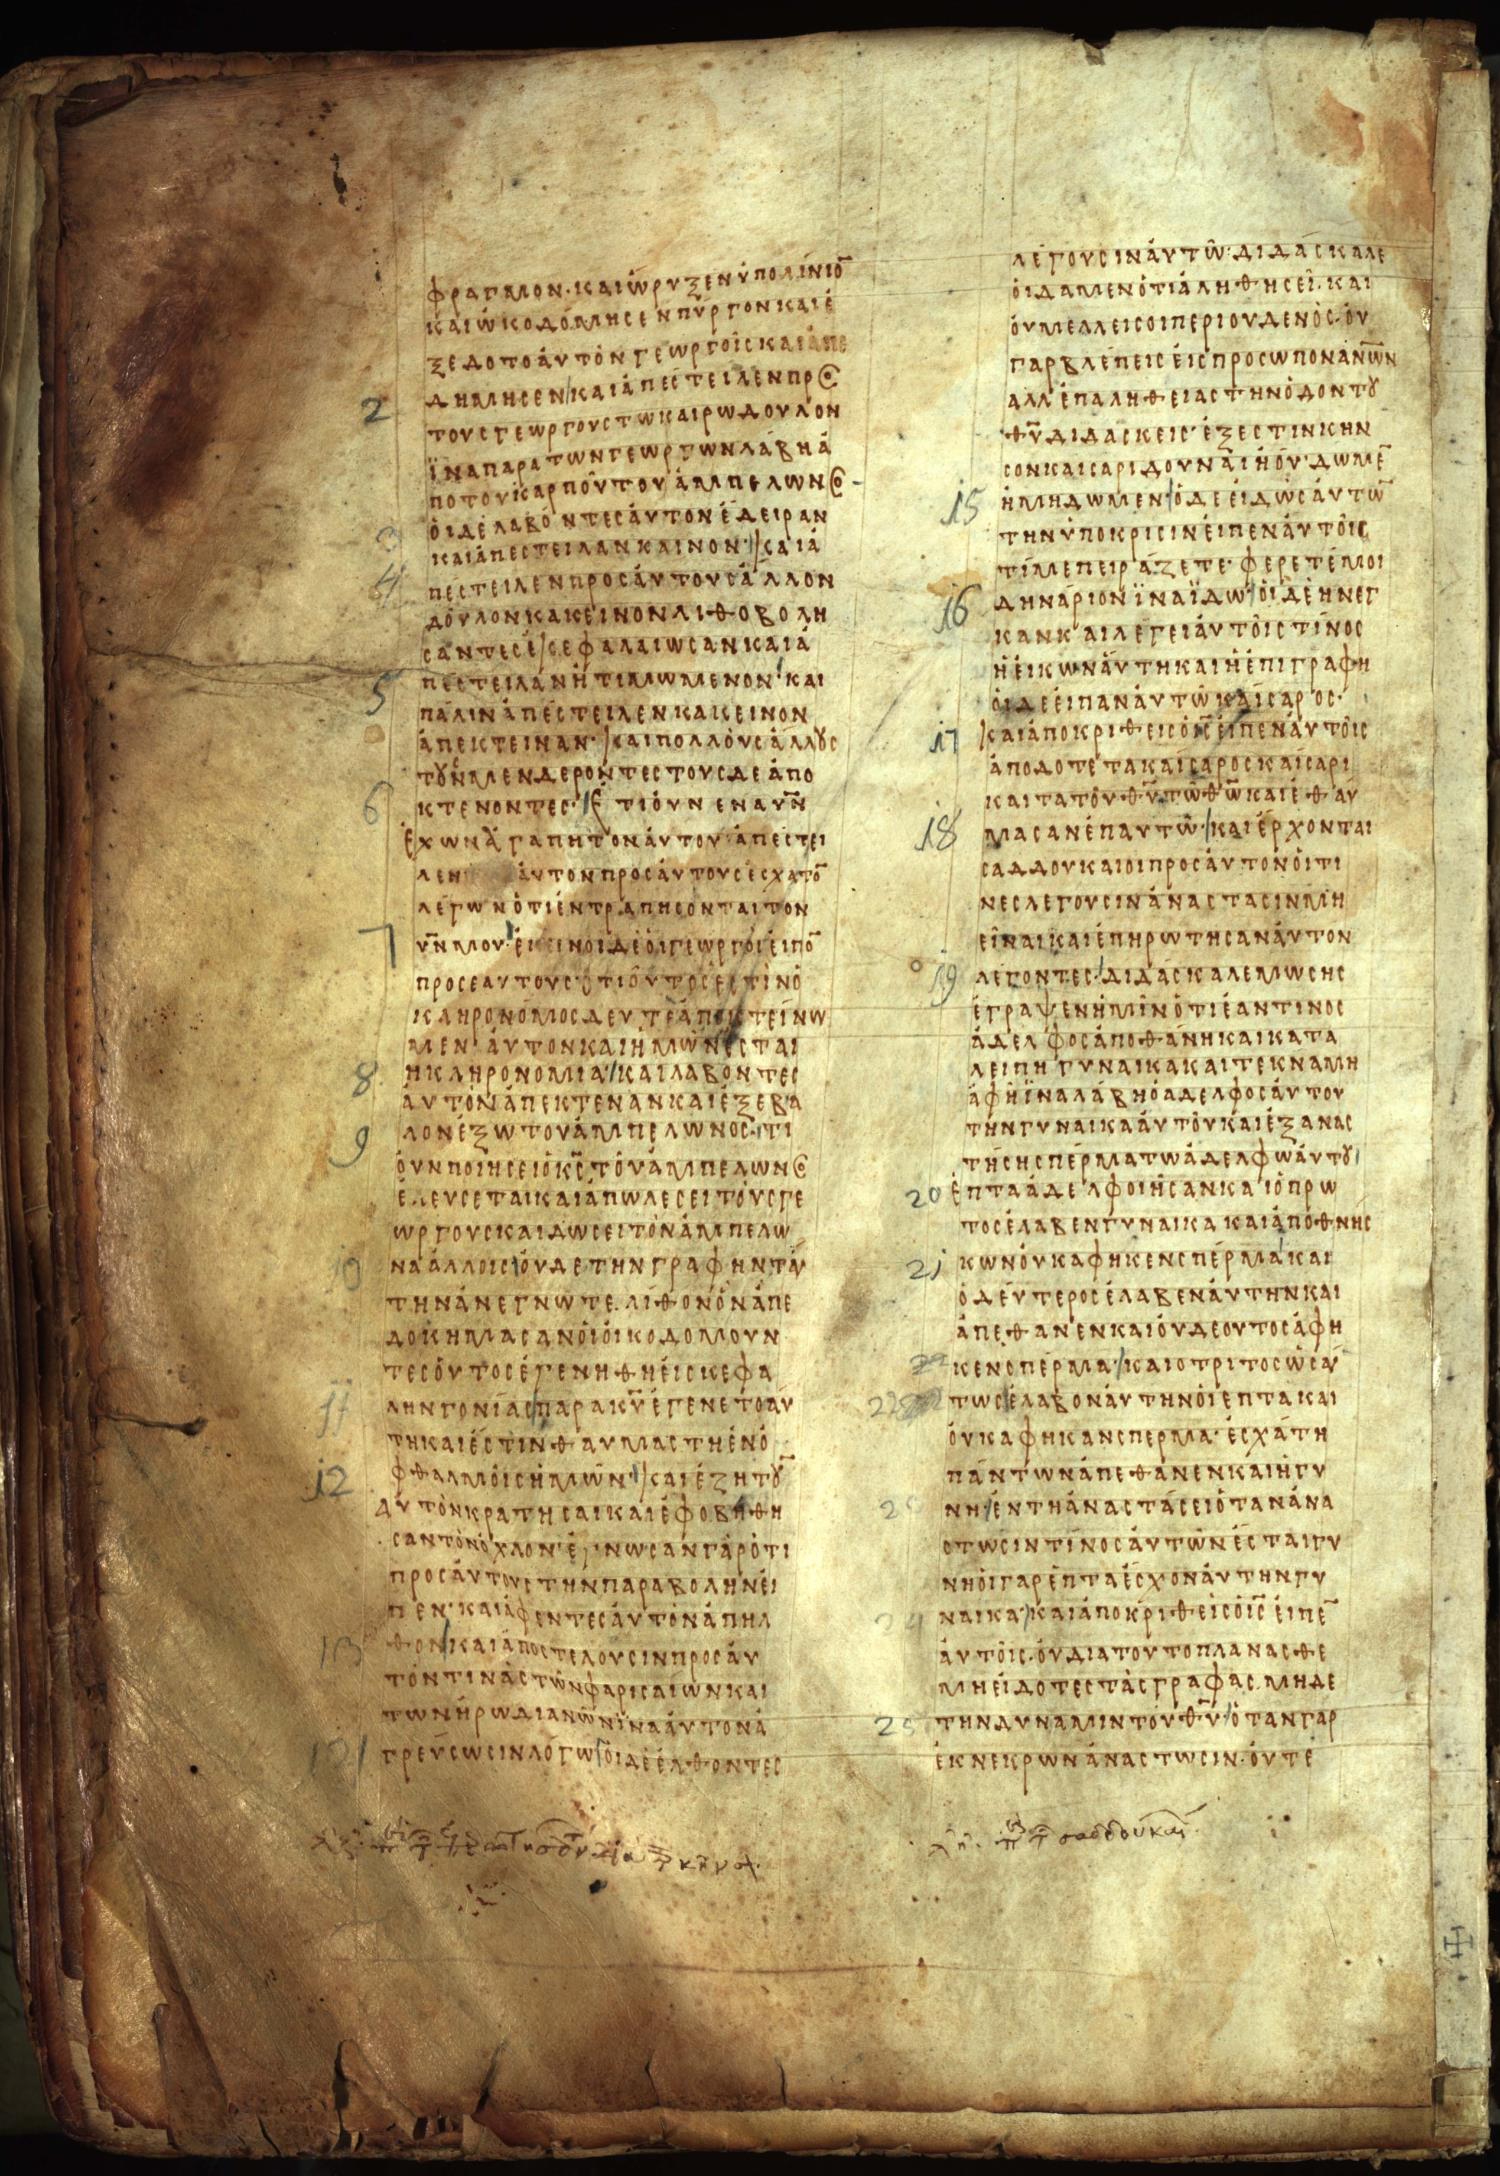 φραγμον· καὶ ὤρυξεν ὑπολίνιο̅
καὶ ὠκοδόμησεν πύργον καὶ ἐ
ξέδοτο ἀυτὸν γεωργοῖς καὶ ἀπε
2 δημησεν καὶ ἀπέστειλεν πρὸς
τους γεωργους τω καιρω δουλον
ϊνα παρα των γεωργων λάβη ἀ
πο του καρποῦ του ἀμπελωνος
3 ὁι δὲ λαβόντες ἀυτον ἔδειραν
καὶ ἀπεστειλαν καινον·
4 καὶ ἀ
πέστειλεν προς ἀυτους ἄλλον
δοῦλον κακεινον λιθοβολη
σαντες ἐκεφαλαιωσαν και ἀ
πέστειλαν ἠτιμωμενον·
5 και
πάλιν ἀπέστειλεν κακεινον
ἀπεκτειναν· και πολλοὺς ἄλλους
τοὺς μεν δεροντες τους δε ἀπο
6 κτενοντες· ἔτι ὀυν ενα υ̅ν̅
ἔχων ἀγαπητον ἀυτου ἀπεστει
λεν ἀυτον προς ἀυτους ἐσχατο̅
λεγων ὁτι ἐντραπησονται τον
7 υ̅ν̅ μου· ἐκεινοι δὲ ὁι γεωργοὶ ἐιπο̅
προς εαυτους ὁτι οὗτος ἐστιν ὁ
κληρονόμος δευτε ἀποκτείνω
μεν ἀυτον και ἡμῶν ἐσται
8 ἡ κληρονομια· και λαβοντες
ἀυτὸν ἀπεκτεναν και ἐξεβα
9 λον ἐξω του ἀμπελωνος· τι
ὀυν ποιησει ὁ κ̅ς̅ τοῦ ἀμπελωνος
ἐλευσεται και ἀπωλεσει τοὺς γε
ωργους και δωσει τὸν ἀμπελω
10 να ἀλλοις· ὀυδε την γραφην ταυ
την ἀνεγνωτε· λιθον ὃν ἀπε
δοκημασαν ὁι ὀικοδομουν
τες ὁυτος ἐγενηθη ἐις κεφα
11 λην γονίας παρα κ̅υ̅ ἐγενετο ἀυ
τη και ἐστιν θαυμαστη ἐν ὀ
12 φθαλμοῖς ἡμῶν· και ἐζητου̅
αυτὸν κρατησαι και ἐφοβήθη
σαν τὸν ὀχλον· ἐγνωσαν γὰρ ὁτι
προς ἀυτους την παραβολην ἐι
πεν· και ἀφεντες ἀυτὸν ἀπηλ
13 θον και ἀποστελουσιν προς ἀυ
τὸν τινὰς τῶν φαρισαίων και
των ἡρωδιανῶν ϊνα ἀυτον ἀ
14 γρεύσωσιν λόγω ὁι δὲ ἐλθοντες
λέγουσιν ἀυτῶ· διδάσκαλε
ὀιδαμεν ὁτι ἀληθὴς εἶ· και
ὀυ μελλει σοι περι ουδενὸς· ὀυ
γαρ βλέπεις ἐις προσωπον ἀν̅ω̅ν
αλλ' ἐπ αληθειας την ὁδον του
θ̅υ̅ διδάσκεις· ἐξεστιν κην
σον καισαρι δουναι ἠ ὀυ· δωμε̅
15 ἠ μη δωμεν· ὁ δε ἐιδὼς ἀυτω̅
την ὑποκρισιν ἐιπεν ἀυτοῖς
τί με πειράζετε· φερετέ μοι
16 δηναριον ϊνα ϊδω· ὁι δὲ ἠνεγ
καν κ αι λεγει ἀυτοῖς τίνος
ἡ ἐικων ἀυτη και ἡ ἐπιγραφη
ὁι δε ἐιπαν ἀυτῶ καίσαρος·
17 και ἀποκριθεις ὁ ι̅ς̅ ἐιπεν ἀυτοῖς
ἀποδοτε τα καίσαρος καίσαρι
και τα τοῦ θ̅υ̅ τῶ θ̅ω̅ και ἐθαυ
18 μασαν ἐπ αυτῶ· και ἐρχονται
σαδδουκαιοι προς ἀυτον ὁιτι
νες λεγουσιν ἀναστασιν μὴ
εἶναι και ἐπηρωτησαν ἀυτον
19 λεγοντες· διδάσκαλε μωσης
ἐγραψεν ἡμῖν ὁτι ἐαν τινος
ἀδελφος ἀποθάνη και κατα
λειπη γυναικα και τεκνα μη
ἀφῆ ϊνα λάβη ὁ αδελφος ἀυτου
τὴν γυναικα ἀυτοῦ και ἐξανας
τήση σπέρμα τω ἀδελφω ἀυτου
20 ἑπτα ἀδελφοι ἦσαν και ὁ πρω
τος ἐλαβεν γυναικα και ἀποθνης
21 κων ὀυκ αφηκεν σπέρμα· και
ὁ δέυτερος ἐλαβεν ἀυτην και
ἀπεθανεν και ὀυδε ουτος ἀφη
κεν σπέρμα· και ο τριτος ὡσαυ
22 τως ἐλαβον ἀυτην ὁι ἑπτα και
ὀυκ αφηκαν σπερμα· ἐσχάτη
πάντων ἀπεθάνεν και ἡ γυ
23 νη· ἐν τη ἀναστάσει ὁταν ἀνα
στωσιν τίνος ἀυτῶν ἐσται γυ
νη ὁι γαρ ἑπτα ἐσχον ἀυτην γυ
24 ναικα· και ἀποκριθεὶς ὁ ι̅ς̅ ἐιπε̅
ἀυτοῖς· ὀυ δια τουτο πλανασθε
μη εἰδοτες τὰς γραφας· μηδε
25 την δυναμιν τοῦ θ̅υ̅· ὁταν γαρ
ἐκ νεκρων ἀναστωσιν· ὀυτε